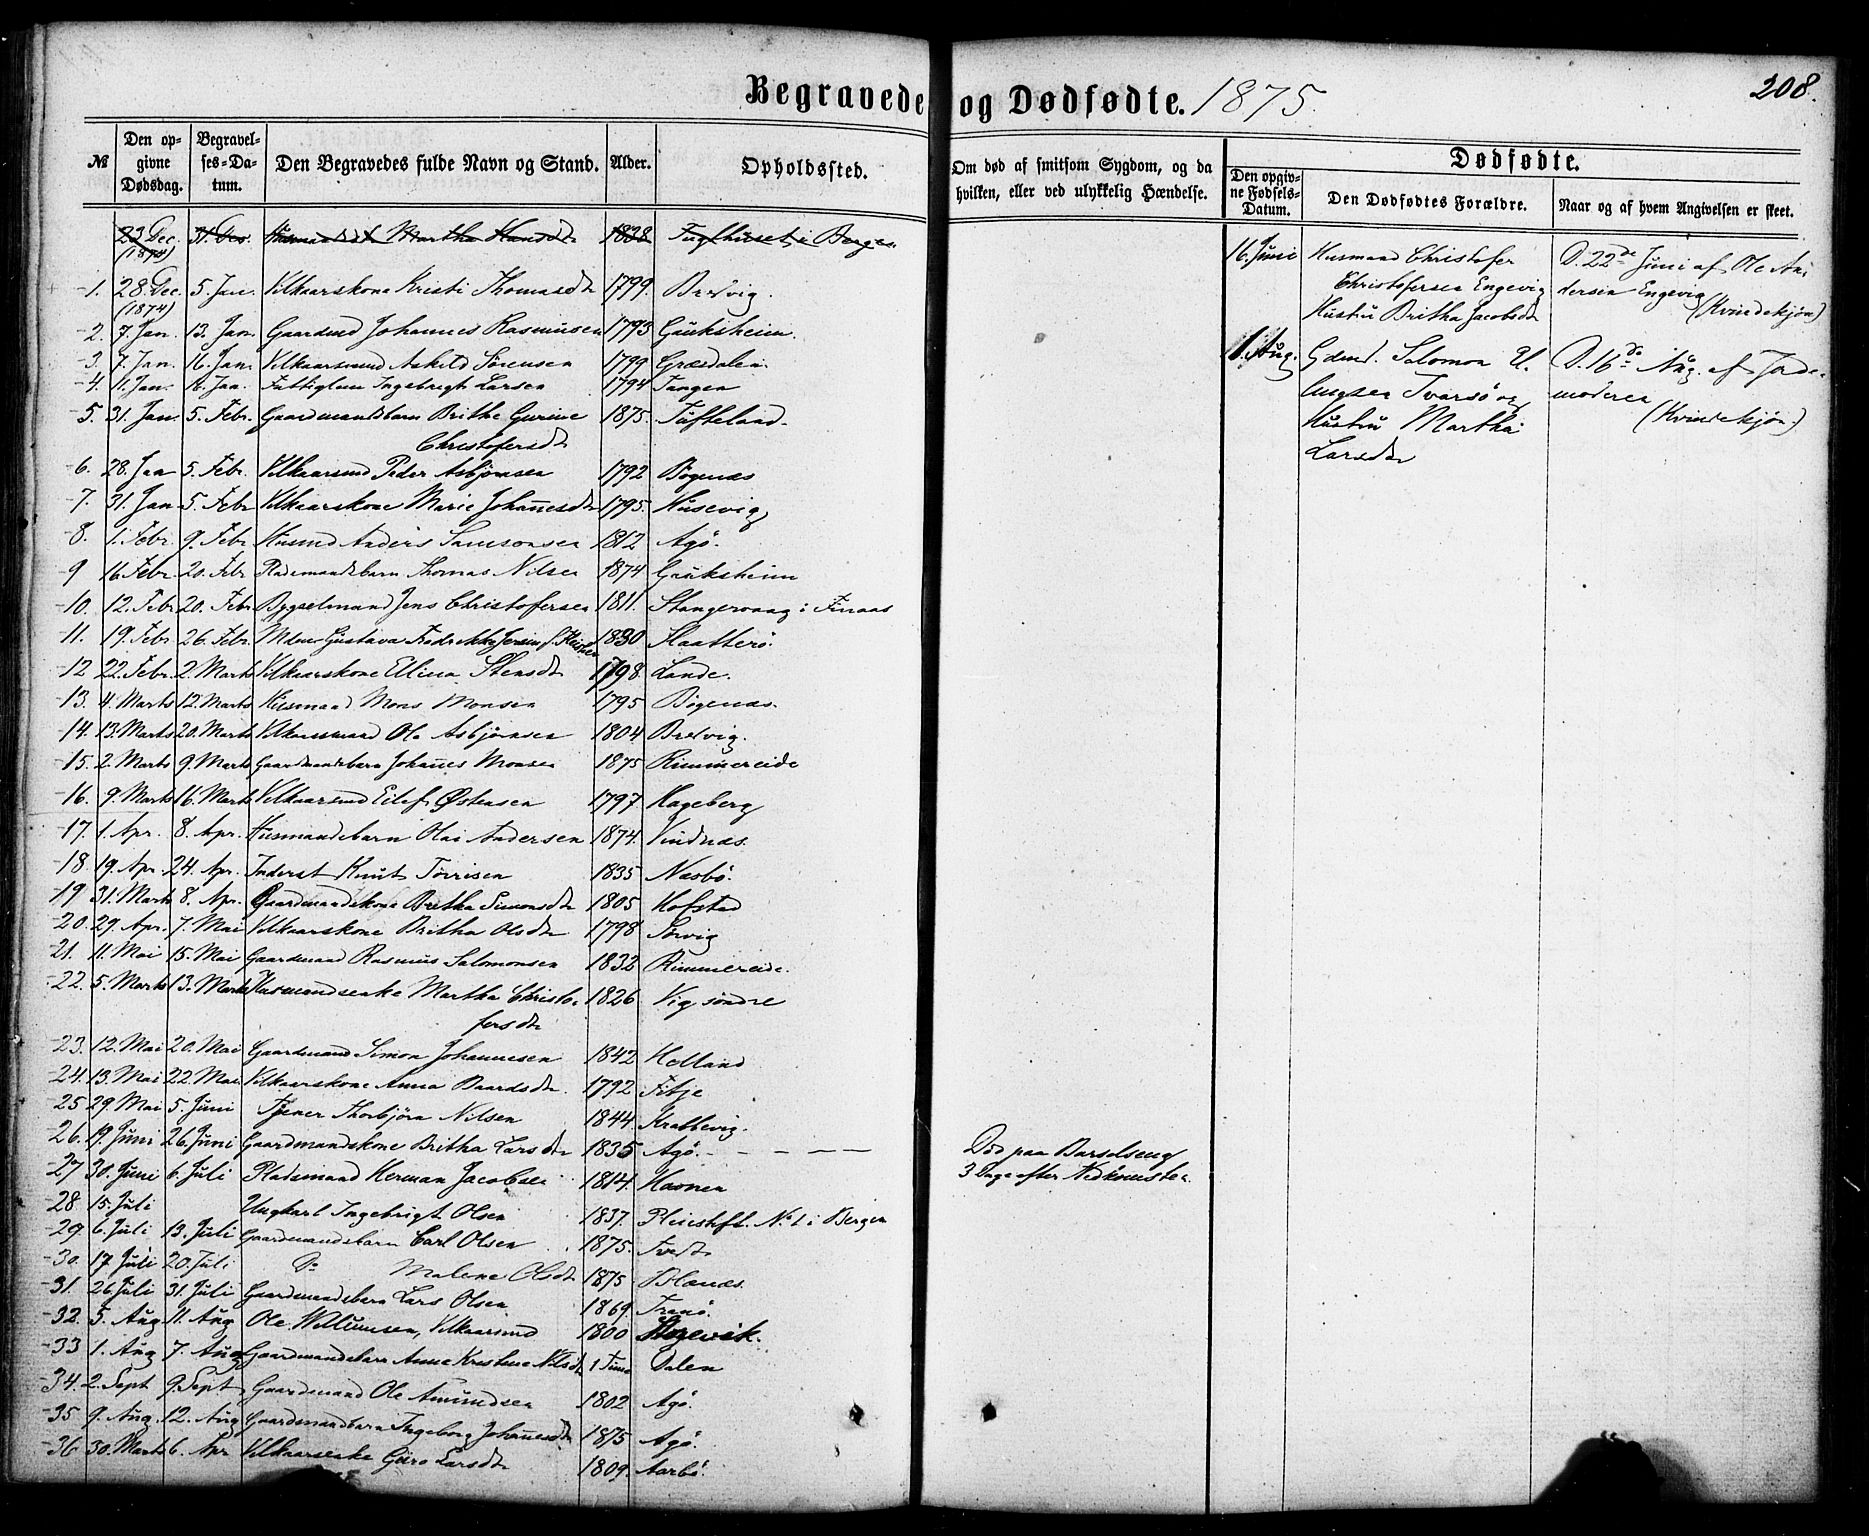 Begravede og Dødfødte. 1875.
208.
№
Den opgivne Dødsdag.
Begravelses-Datum.
Den Begravedes fulde Navn og Stand.
Alder.
Opholdssted.
Om død af smitsom Sygdom, og da hvilken, eller ved ulykkelig Hændelse.
Dødfødte.
Den opgivne Fødsels-Datum.
Den Dødfødtes Forældre.
Naar og af hvem Angivelsen er skeet.
23 Dec. (1874) 31. Dec. Martha Hansdt 1838 i Bergen
1. 28. Dec. (1874) 5. Jan. Vilkaarskone Kristi Thomasdt 1799. Bredvig.
2. 7. Jan. 13. Jan. Gaardmd Johannes Rasmusen 1793 Gauksheim.
3. 7. Jan. 16. Jan. Vilkaarsmd Askild Sørensen 1799 Græsdalen.
4. 11. Jan. 16. Jan. Fattiglem Ingebrigt Larsen 1794 Tangen
5. 31. Jan. 5. Febr. Gaardmandsbarn Brithe Gurine 1875. Tufteland.
Christofersdt
6. 28. Jan 5. Febr. Vilkaarsmd Peder Asbjørnsen 1792 Bøgenæs
7. 31. Jan 5. Febr Vilkaarskone Marie Johanesdt 1795. Husevig
8. 1. Febr. 9. Febr Husmd Anders Samsonsen 1812 Agø.
9 16 Febr. 20. Febr Pladsmandsbarn Thomas Nilsen 1874 Gauksheim
10. 12. Febr 20. Febr Bygselmand Jens Christofersen 1811. Stangervaag i Finaas
11. 19. Febr. 26. Febr. Gustava 1830 Flatterø.
12 22. Febr. 2. Marts Vilkaarskone Ellina Stensdt 1798. Lande.
13. 4. Marts 12. Marts Husmand Mons Monsen 1795 Bøgenæs.
14. 13. Marts 20. Marts Vilkaarsmand Ole Asbjørnsen 1804 Bredvig.
15. 2. Marts 9. Marts Gaardmandsbarn Johanes Monsen 1875 Rimmereide
16. 9. Marts 16. Marts Vilkaarsmd Eilef Østensen 1797. Hageberg
17. 1. Apr. 8. Apr. Husmandsbarn Olai Andersen 1874. Vindnæs.
18 19. Apr. 24. Apr. Inderst Knut Tørrisen 1835 Næsbø.
19 31. Marts 8. Apr. Gaardmandskone Britha Simonsdt 1805 Hofstad
20. 29. Apr. 7. Mai Vilkaarskone Britha Olsdt 1798 Sørvig
21. 11. Mai 15. Mai Gaardmand Rasmus Salomonsen 1832 Rimmereide.
22. 5. Marts 13. Marts Husmandsenke Martha Christo- 1826 Vig søndre
fersdt
23. 12. Mai 20. Mai Gaardmand Simon Johannesen 1842 Helland
24. 13. Mai 22. Mai Vilkaarskone Anna Baardsdt. 1792 Fitje
25 29. Mai 5. Juni Tjener Thorbjørn Nilsen 1844. Krabbevig.
26. 19. Juni 26. Juni Gaardmandskone Britha Larsdt 1835 Agø. Død paa Barselseng
3 Dage efter Nedkomsten.
27 30. Juni 6. Juli Pladsmand Herman Jacobsen 1814. Havnen
28 15. Juli Ungkarl Ingebrigt Olsen 1837. Pleiestift. No 1 i Bergen
29. 6. Juli 13. Juli Gaardmandsbarn Carl Olsen 1875. Tvedt
30. 17 Juli 20. Juli Do Malene Olsdt 1875
31. 26 Juli 31. Juli Gaardmandsbarn Lars Olsen 1869. Tranø.
32. 5. Aug 11. Aug Ole Willumsen, Vilkaarsmd 1800
33 1. Aug 7. Aug Gaardmandsbarn Anne Kristine Nilsdt 1 Time Dalen
34. 2. Sept 9. Sept Gaardmand Ole Amundsen 1802 Agø.
35 9. Aug. 12. Aug Gaardmandsbarn Ingeborg Johanesdt 1875 Agø.
36 30. Marts 6. Apr Vilkaarsenke Guro Larsdt 1809. Aarbø.
16. Juni Husmand Christofer D. 22de Juni af Ole An-
Christofersen Engevig dersen Engevig
Hustru Britha Jacobsdt (Kvindekjøn)
11. Aug. Gdmd. Salomon El- D. 16de Aug. af Jorde-
lingsen Ivarsø og moderen
Hustru Martha (Kvindekjøn.)
Larsdt